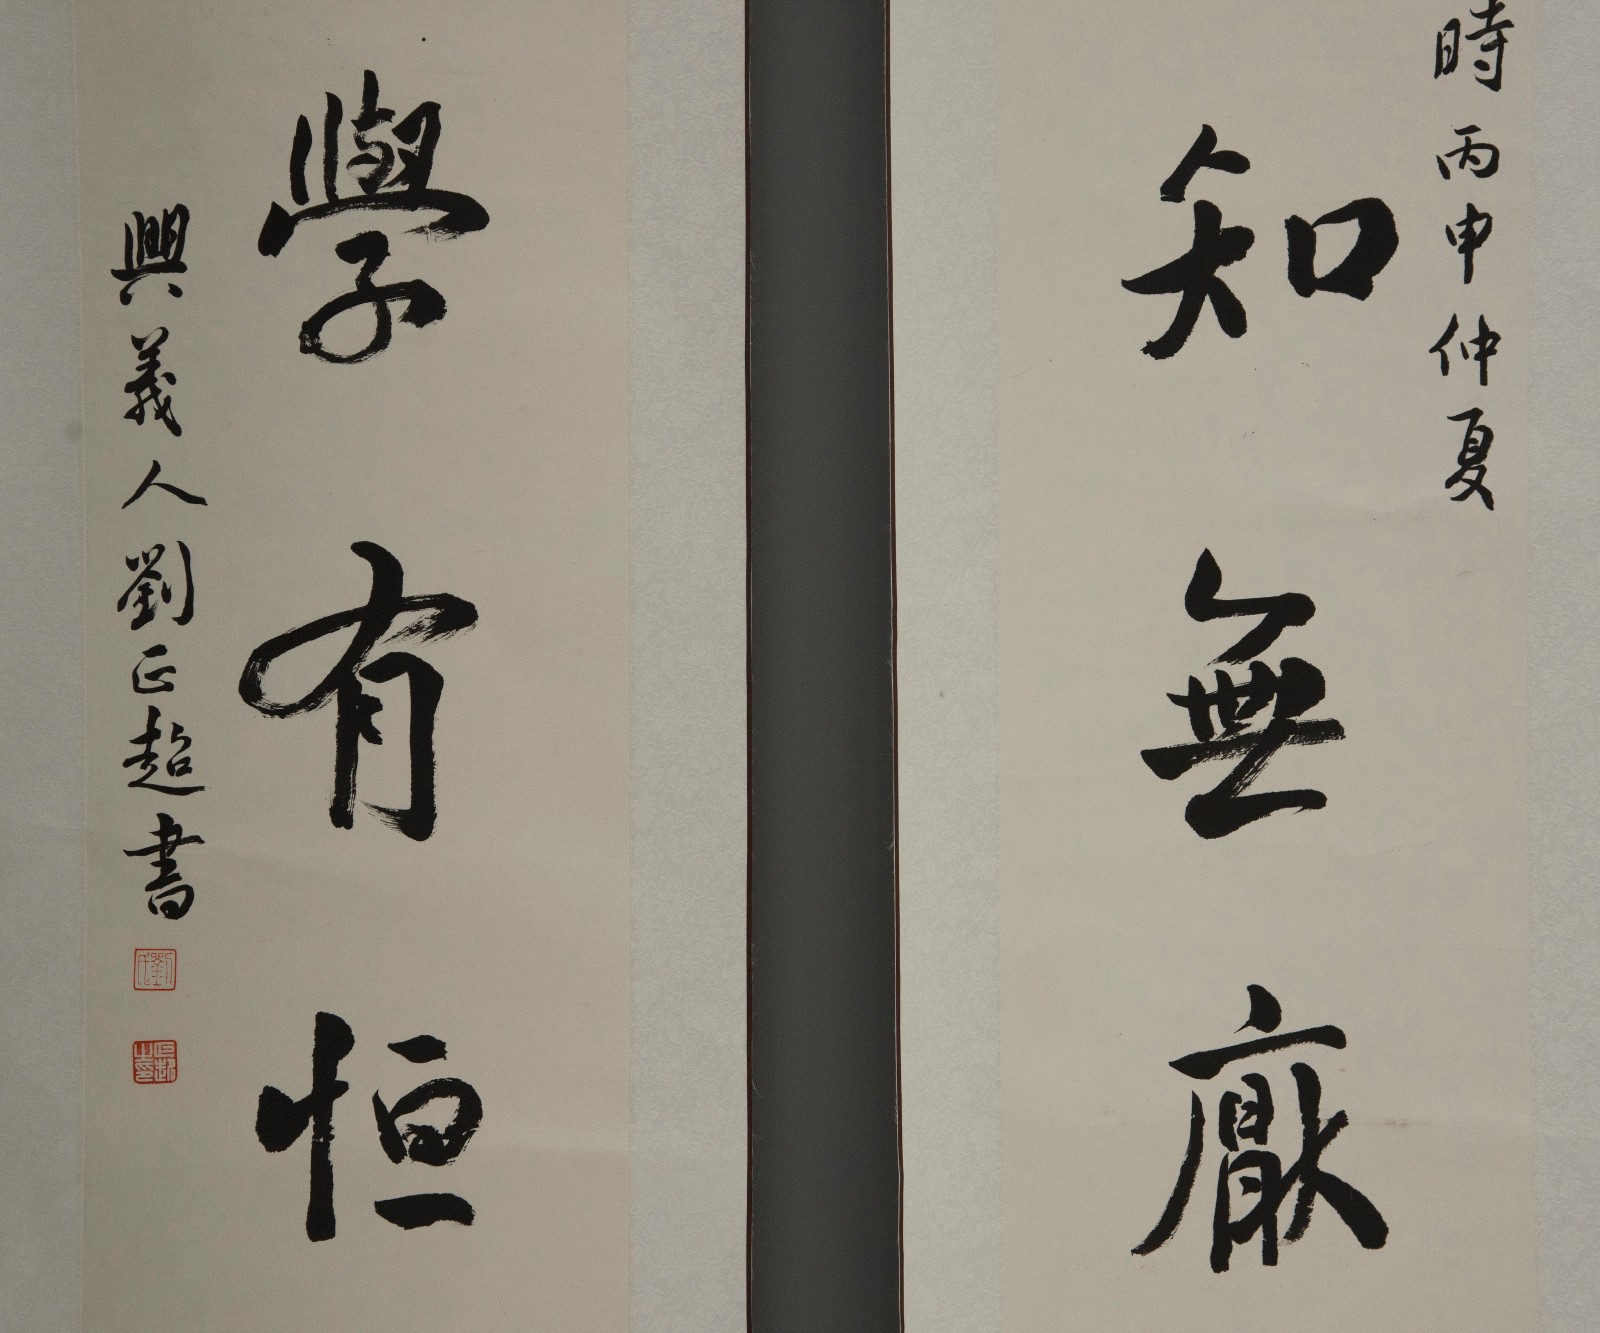 時丙申仲夏
知無厭
學有恒
興義人劉正超書
劉氏